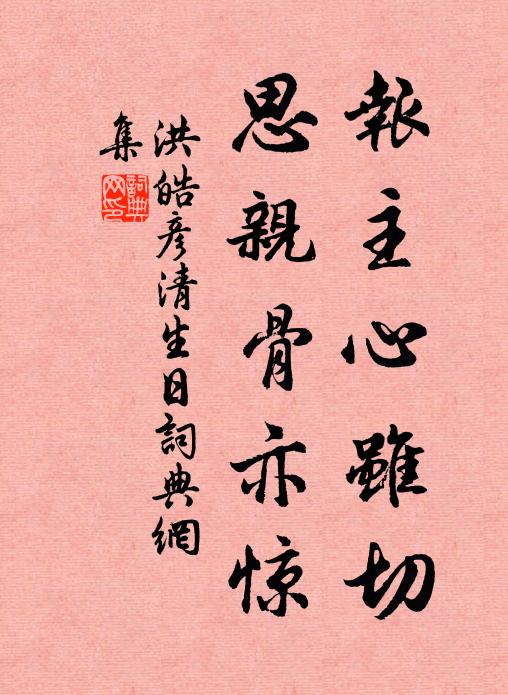 報主心雖切
思親骨亦惊
洪皓彥清生日詞典網
集
詞典
网印